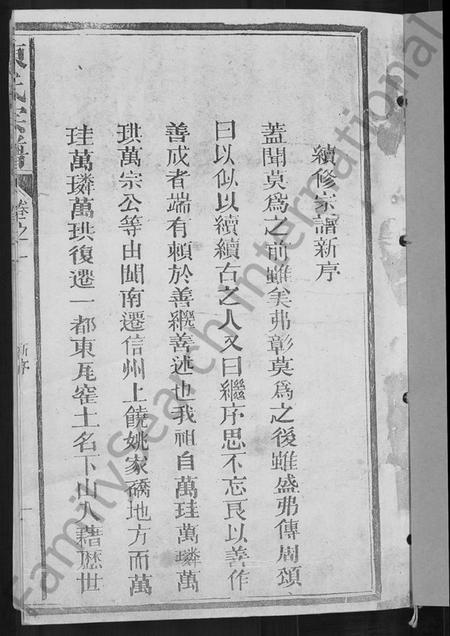 續修家譜新序
蓋聞莫爲之前雖美弗彰莫爲之後雖盛弗傳周頌
曰以似以續續古之人又曰繼序思不忘良以善作
善成者端有賴於善繼善述也我祖自萬珪萬璘萬
珙萬宗公等由閩南遷信州上饒姚家礄地方而萬
珪萬璘萬珙復遷一都東瓦窑土名下山入藉歷世
氏宗譜
卷之一
新序
一
FamilySearch International